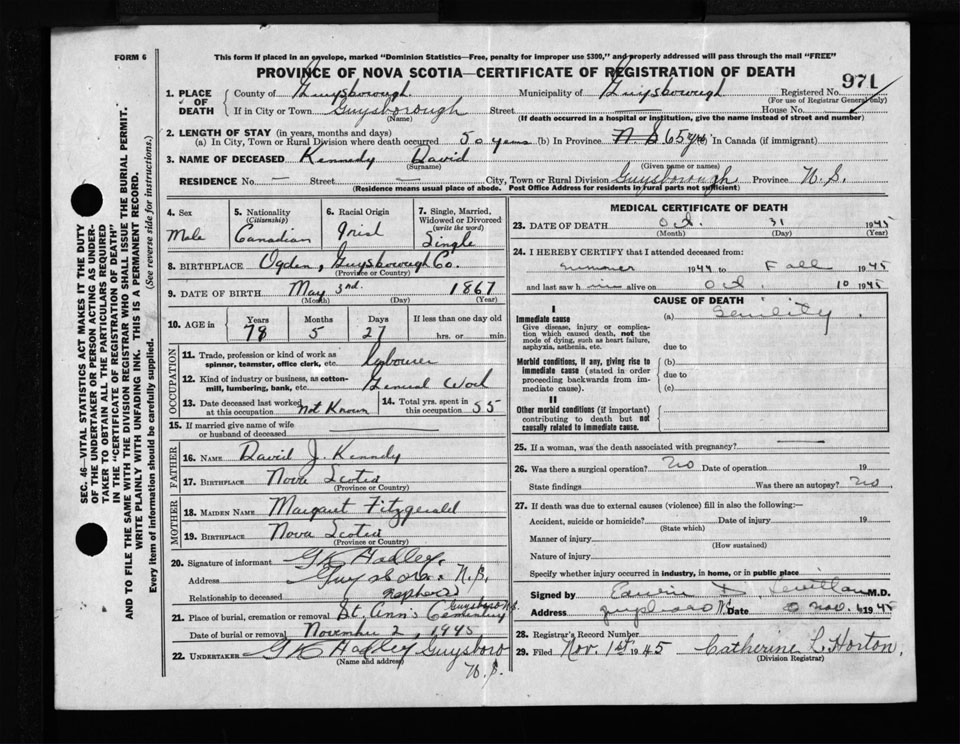 FORM 6
This form if placed in an envelope, marked "Dominion Statistics—Free, penalty for improper use $300," and properly addressed will pass through the mail "FREE"
PROVINCE OF NOVA SCOTIA—CERTIFICATE OF REGISTRATION OF DEATH
971
1. PLACE OF DEATH
County of Guysborough. Municipality of Guysborough Registered No.
(For use of Registrar General only)
If in City or Town Guysborough Street — House No.
(Name) (If death occurred in a hospital or institution, give the name instead of street and number)
2. LENGTH OF STAY (in years, months and days)
(a) In City, Town or Rural Division where death occurred 50 years (b) In Province N.S 65 yrs (c) In Canada (if immigrant)
3. NAME OF DECEASED Kennedy David
(Surname) (Given name or names)
RESIDENCE No. — Street — City, Town or Rural Division Guysborough. Province N.S.
(Residence means usual place of abode. Post Office Address for residents in rural parts not sufficient)
4. Sex Male
5. Nationality (Citizenship) Canadian
6. Racial Origin Irish
7. Single, Married, Widowed or Divorced (write the word) Single
8. BIRTHPLACE Ogden, Guysborough Co.
(Province or Country)
9. DATE OF BIRTH May 3rd. 1867
(Month) (Day) (Year)
10. AGE in Years 78 Months 5 Days 27 If less than one day old hrs. or min.
OCCUPATION
11. Trade, profession or kind of work as spinner, teamster, office clerk, etc. Labourer
12. Kind of industry or business, as cotton-mill, lumbering, bank, etc. General Work
13. Date deceased last worked at this occupation Not Known
14. Total yrs. spent in this occupation 55
15. If married give name of wife or husband of deceased
FATHER
16. NAME David J. Kennedy
17. BIRTHPLACE Nova Scotia
(Province or Country)
MOTHER
18. MAIDEN NAME Margaret Fitzgerald
19. BIRTHPLACE Nova Scotia
(Province or Country)
20. Signature of informant GK Hadley.
Address Guysboro. N.S.
Relationship to deceased
21. Place of burial, cremation or removal St. Ann's Cemetery Guysboro N.S.
Date of burial or removal November 2, 1945
22. UNDERTAKER GK Hadley Guysboro N.S.
(Name and address)
MEDICAL CERTIFICATE OF DEATH
23. DATE OF DEATH Oct. 31 1945
(Month) (Day) (Year)
24. I HEREBY CERTIFY that I attended deceased from:
summer 1944 to Fall 1945
and last saw him alive on Oct. 10 1945
CAUSE OF DEATH
I
Immediate cause
Give disease, injury or complication which caused death, not the mode of dying, such as heart failure, asphyxia, asthenia, etc.
(a) Senility.
due to
Morbid conditions, if any, giving rise to immediate cause (stated in order proceeding backwards from immediate cause).
(b)
due to
(c)
II
Other morbid conditions (if important) contributing to death but not causally related to immediate cause.
25. If a woman, was the death associated with pregnancy? —
26. Was there a surgical operation? no Date of operation 19
State findings Was there an autopsy? no.
27. If death was due to external causes (violence) fill in also the following:—
Accident, suicide or homicide? Date of injury 19
(State which)
Manner of injury
(How sustained)
Nature of injury
Specify whether injury occurred in industry, in home, or in public place
Signed by M.D.
Address Date Nov. 1945
28. Registrar's Record Number
29. Filed Nov. 1st 1945 Catherine L. Horton.
(Division Registrar)
SEC. 46—VITAL STATISTICS ACT MAKES IT THE DUTY
OF THE UNDERTAKER OR PERSON ACTING AS UNDER-
TAKER TO OBTAIN ALL THE PARTICULARS REQUIRED
IN THE "CERTIFICATE OF REGISTRATION OF DEATH"
AND TO FILE THE SAME WITH THE DIVISION REGISTRAR WHO SHALL ISSUE THE BURIAL PERMIT.
WRITE PLAINLY WITH UNFADING INK. THIS IS A PERMANENT RECORD.
Every item of information should be carefully supplied. (See reverse side for instructions.)